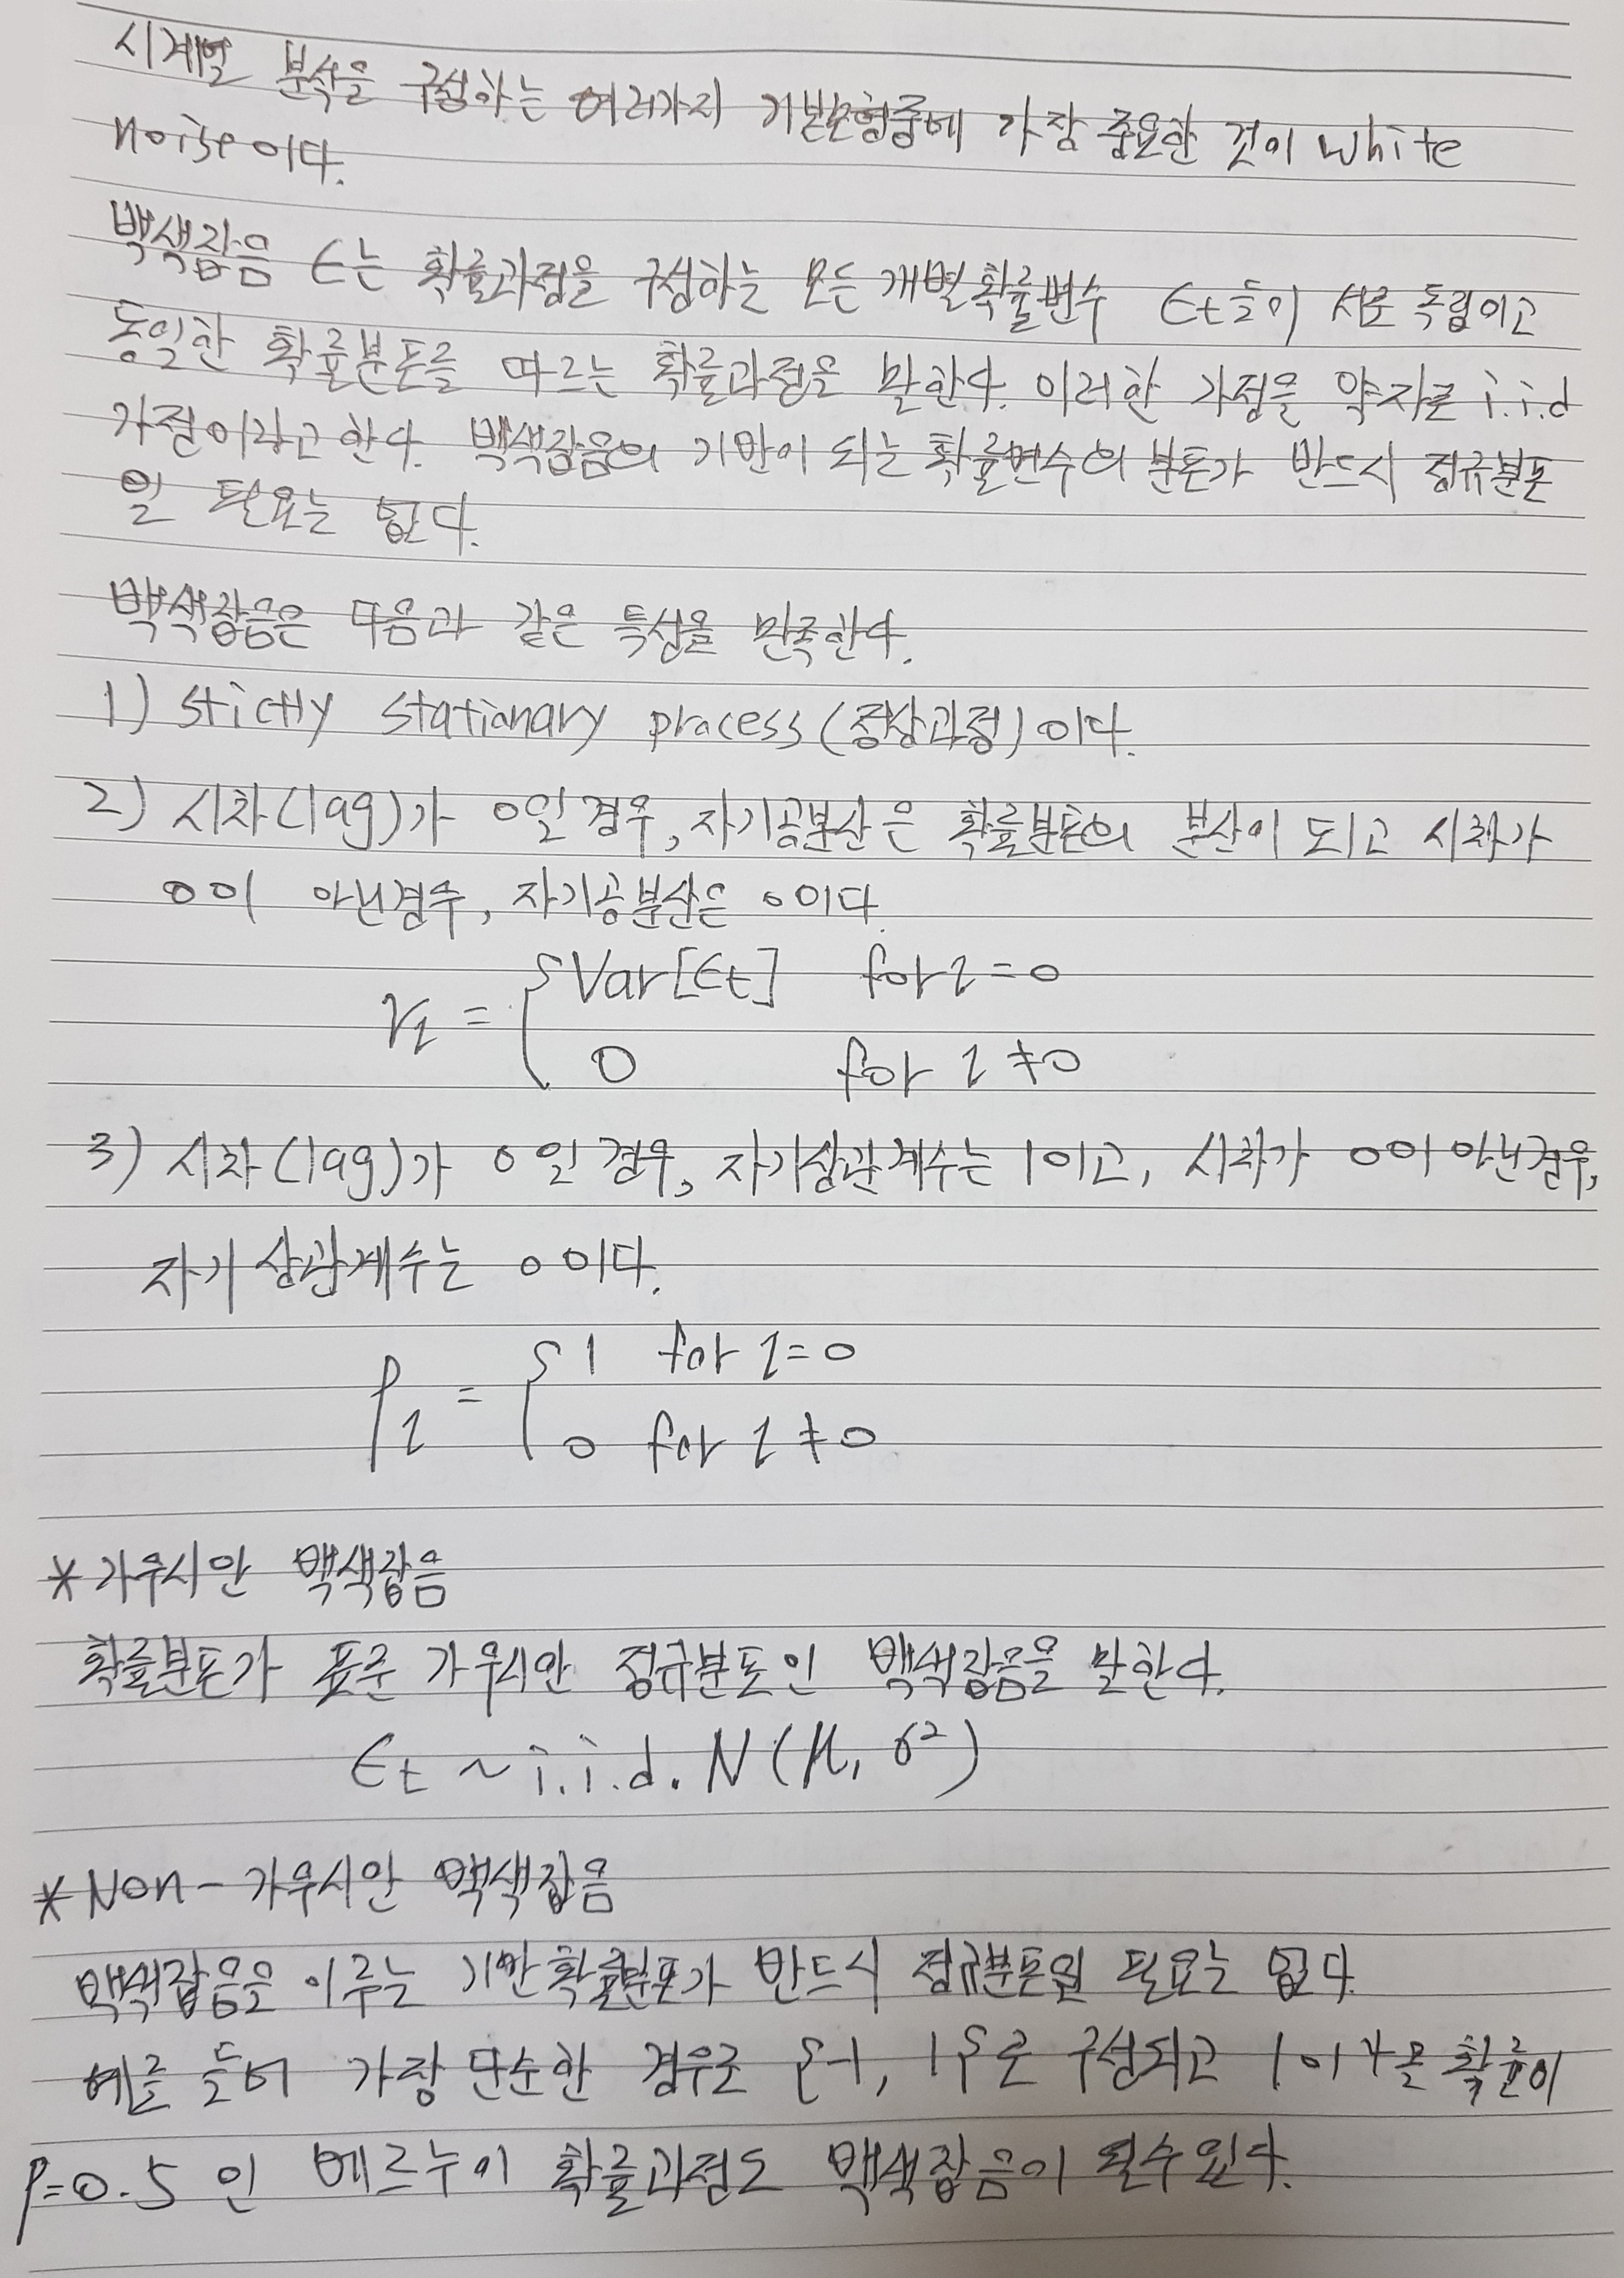 시계열 분석을 구성하는 여러가지 기본모형중에 가장 중요한 것이 white
noise이다.
백색잡음 ϵ는 확률과정을 구성하는 모든 개별확률변수 ϵt들이 서로 독립이고
동일한 확률분포를 따르는 확률과정을 말한다. 이러한 가정을 약자로 i.i.d
가정이라고 한다. 백색잡음의 기반이 되는 확률변수의 분포가 반드시 정규분포
일 필요는 없다.
백색잡음은 다음과 같은 특성을 만족한다.
1) stictly stationary process(정상과정)이다.
2) 시차(lag)가 0일 경우, 자기공분산은 확률분포의 분산이 되고 시차가
0이 아닌경우, 자기공분산은 0이다.
γl = { Var[ϵt] for l = 0
0 for l ≠ 0
3) 시차(lag)가 0일 경우, 자기상관계수는 1이고, 시차가 0이 아닌경우,
자기상관계수는 0이다.
ρl = { 1 for l = 0
0 for l ≠ 0
* 가우시안 백색잡음
확률분포가 표준 가우시안 정규분포인 백색잡음을 말한다.
ϵt ~ i.i.d. N(μ, σ²)
* Non-가우시안 백색잡음
백색잡음을 이루는 기반확률분포가 반드시 정규분포일 필요는 없다.
예를 들어 가장 단순한 경우로 {-1, 1}로 구성되고 1이 나올 확률이
p=0.5 인 베르누이 확률과정도 백색잡음이 될수있다.